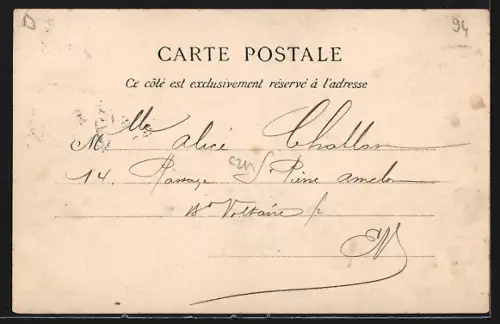 D
94
CARTE POSTALE
Ce côté est exclusivement réservé à l'adresse
Mlle Alice Challan
14. Passage St Pierre Amelot
Bd Voltaire
EV